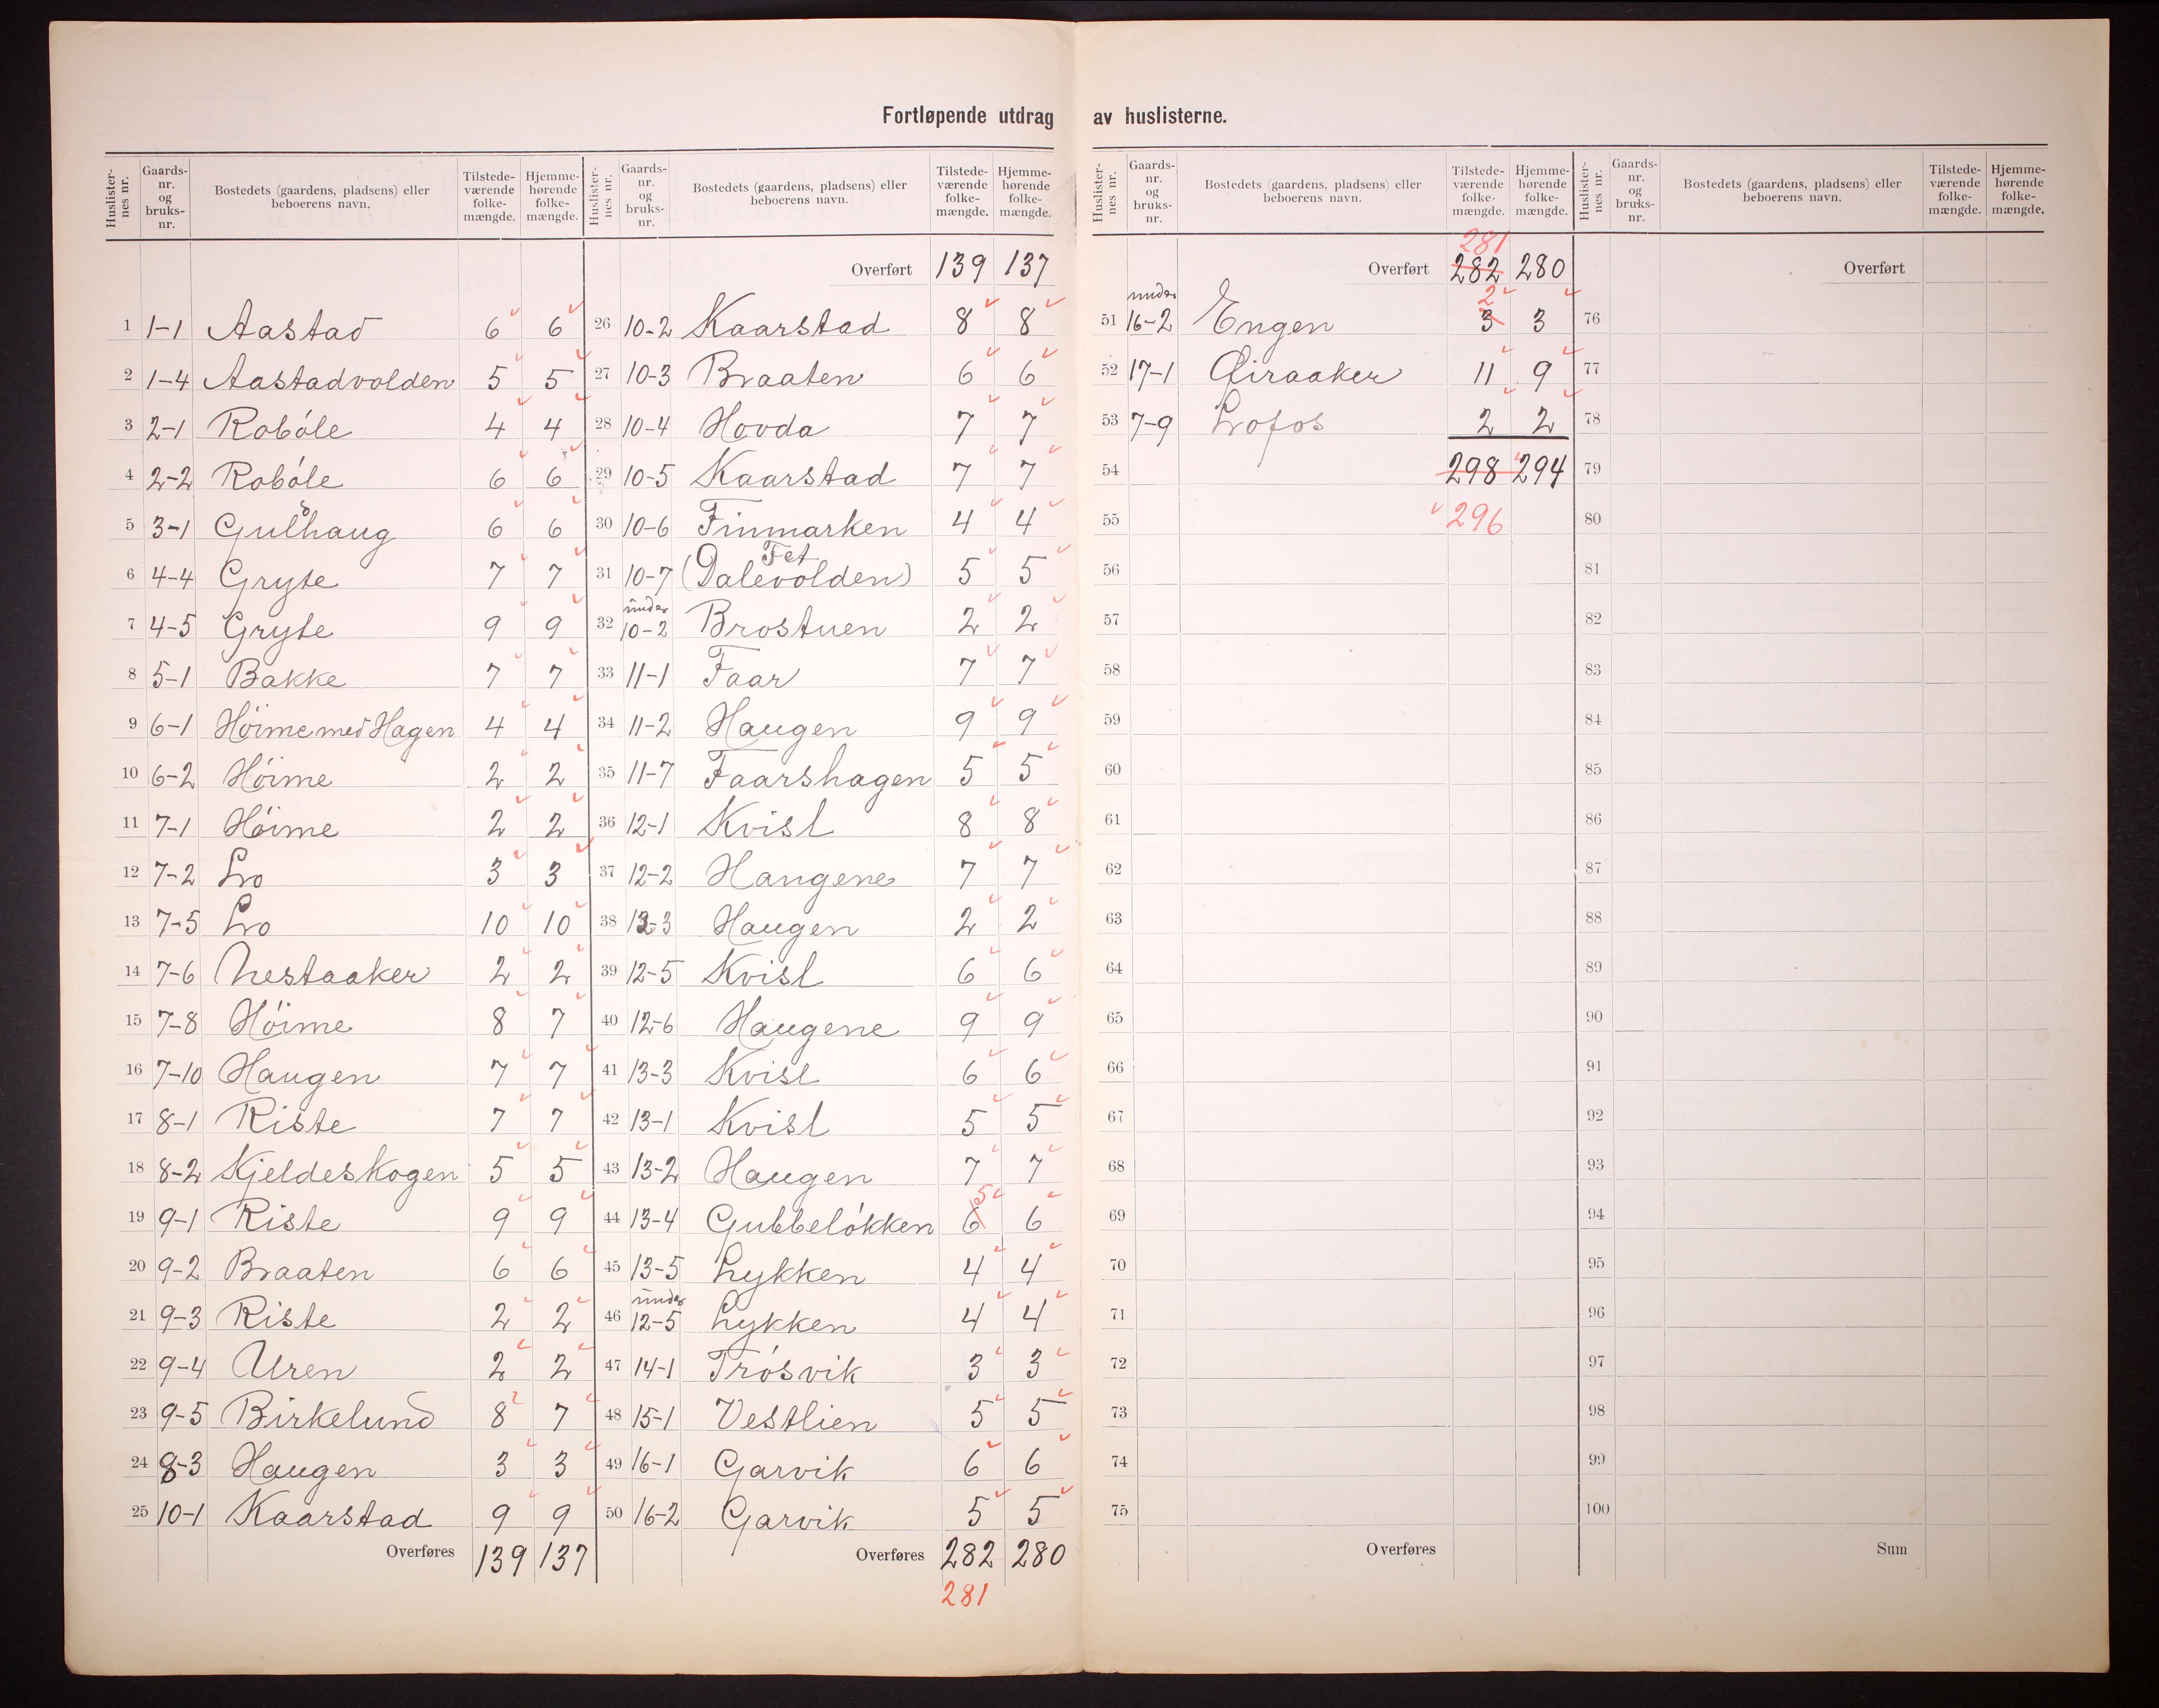 Fortløpende utdrag av huslisterne.
Huslister-nes nr. Gaards-nr. og bruks-nr. Bostedets (gaardens, pladsens) eller beboerens navn. Tilstede-værende folke-mængde. Hjemme-hørende folke-mængde.
1 1-1 Aastad 6 6
2 1-4 Aastadvolden 5 5
3 2-1 Robóle 4 4
4 2-2 Robóle 6 6
5 3-1 Gulhaug 6 6
6 4-4 Gryte 7 7
7 4-5 Gryte 9 9
8 5-1 Bakke 7 7
9 6-1 Höime med Hagen 4 4
10 6-2 Hóime 2 2
11 7-1 Hóime 2 2
12 7-2 Lro 3 3
13 7-5 Lro 10 10
14 7-6 Nestaaker 2 2
15 7-8 Hóime 8 7
16 7-10 Haugen 7 7
17 8-1 Riste 7 7
18 8-2 Kjeldeskogen 5 5
19 9-1 Riste 9 9
20 9-2 Braaten 6 6
21 9-3 Riste 2 2
22 9-4 Uren 2 2
23 9-5 Birkelund 8 7
24 8-3 Haugen 3 3
25 10-1 Kaarstad 9 9
Overføres 139 137
Huslister-nes nr. Gaards-nr. og bruks-nr. Bostedets (gaardens, pladsens) eller beboerens navn. Tilstede-værende folke-mængde. Hjemme-hørende folke-mængde.
Overført 139 137
26 10-2 Kaarstad 8 8
27 10-3 Braaten 6 6
28 10-4 Hovda 7 7
29 10-5 Kaarstad 7 7
30 10-6 Finmarken 4 4
Fet
31 10-7 (Dalevolden) 5 5
under
32 10-2 Brostuen 2 2
33 11-1 Faar 7 7
34 11-2 Haugen 9 9
35 11-7 Faarshagen 5 5
36 12-1 Kvisl 8 8
37 12-2 Haugene 7 7
38 12-3 Haugen 2 2
39 12-5 Kvisl 6 6
40 12-6 Haugene 9 9
41 13-3 Kvisl 6 6
42 13-1 Kvisl 5 5
43 13-2 Haugen 7 7
5
44 13-4 Gubbelókken 6 6
45 13-5 Lykken 4 4
under
46 12-5 Lykken 4 4
47 14-1 Trósvik 3 3
48 15-1 Vestlien 5 5
49 16-1 Garvik 6 6
50 16-2 Garvik 5 5
Overføres 282 280
281
Huslister-nes nr. Gaards-nr. og bruks-nr. Bostedets (gaardens, pladsens) eller beboerens navn. Tilstede-værende folke-mængde. Hjemme-hørende folke-mængde.
281
Overført 282 280
under 2
51 16-2 Engen 3 3
52 17-1 Qiraaker 11 9
53 7-9 Lrofos 2 2
54 298 294
55 296
56
57
58
59
60
61
62
63
64
65
66
67
68
69
70
71
72
73
74
75
Overføres
Huslister-nes nr. Gaards-nr. og bruks-nr. Bostedets (gaardens, pladsens) eller beboerens navn. Tilstede-værende folke-mængde. Hjemme-hørende folke-mængde.
Overført
76
77
78
79
80
81
82
83
84
85
86
87
88
89
90
91
92
93
94
95
96
97
98
99
100
Sum